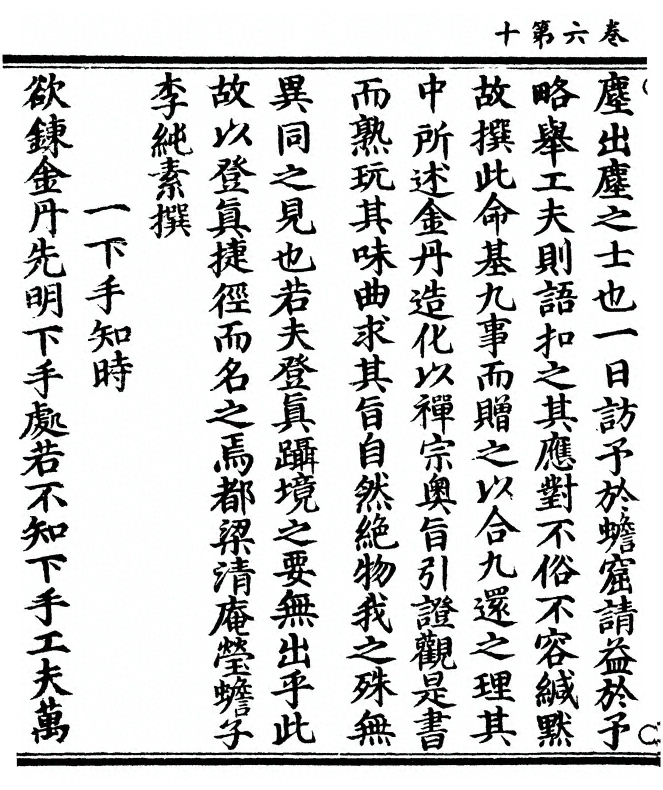 卷六第十
塵出塵之士也一日訪予於蟾窟請益於予
略舉工夫則語扣之其應對不俗不容緘默
故撰此命基九事而贈之以合九還之理其
中所述金丹造化以禪宗奧旨引證觀是書
而熟玩其味曲求其旨自然絕物我之殊無
異同之見也若夫登真躡境之要無出乎此
故以登真捷徑而名之焉都梁清庵瑩蟾子
李純素撰
一下手知時
欲鍊金丹先明下手處若不知下手工夫萬